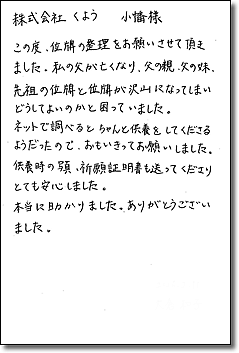 株式会社 くよう　小幡様
この度、位牌の整理をお願いさせて頂き
ました。私の父が亡くなり、父の親、父の妹、
先祖の位牌と位牌が沢山になってしまい
どうしてよいのかと困っていました。
ネットで調べると ちゃんと供養をしてくださる
ようだったので、おもいきってお願いしました。
供養時の写真、祈願証明書も送ってくださり
とても安心しました。
本当に助かりました。ありがとうござい
ました。